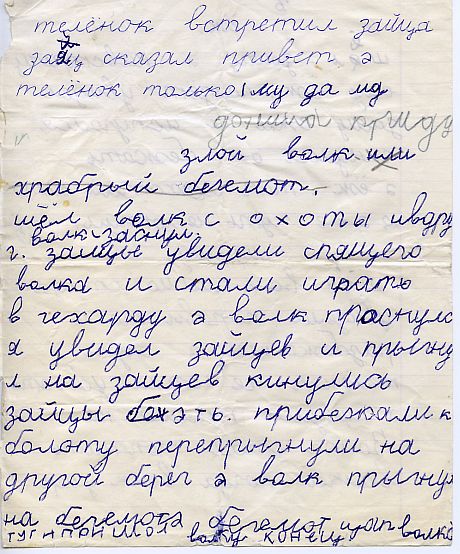 телёнок встретил зайца
заяц сказал привет а
телёнок только му да му
домика приду
злой волк или
храбрый бегемот.
шёл волк с охоты ивдру
волк заснул.
г. зайцы увидели спящего
волка и стали играть
в чехарду а волк проснулс
я увидел зайцев и прыгну
л на зайцев кинулись
зайцы бежать. прибежали к
болоту перепрыгнули на
другой берег а волк прыгнул
на бегемота бегемот цап волка
тут и пришол волку конец